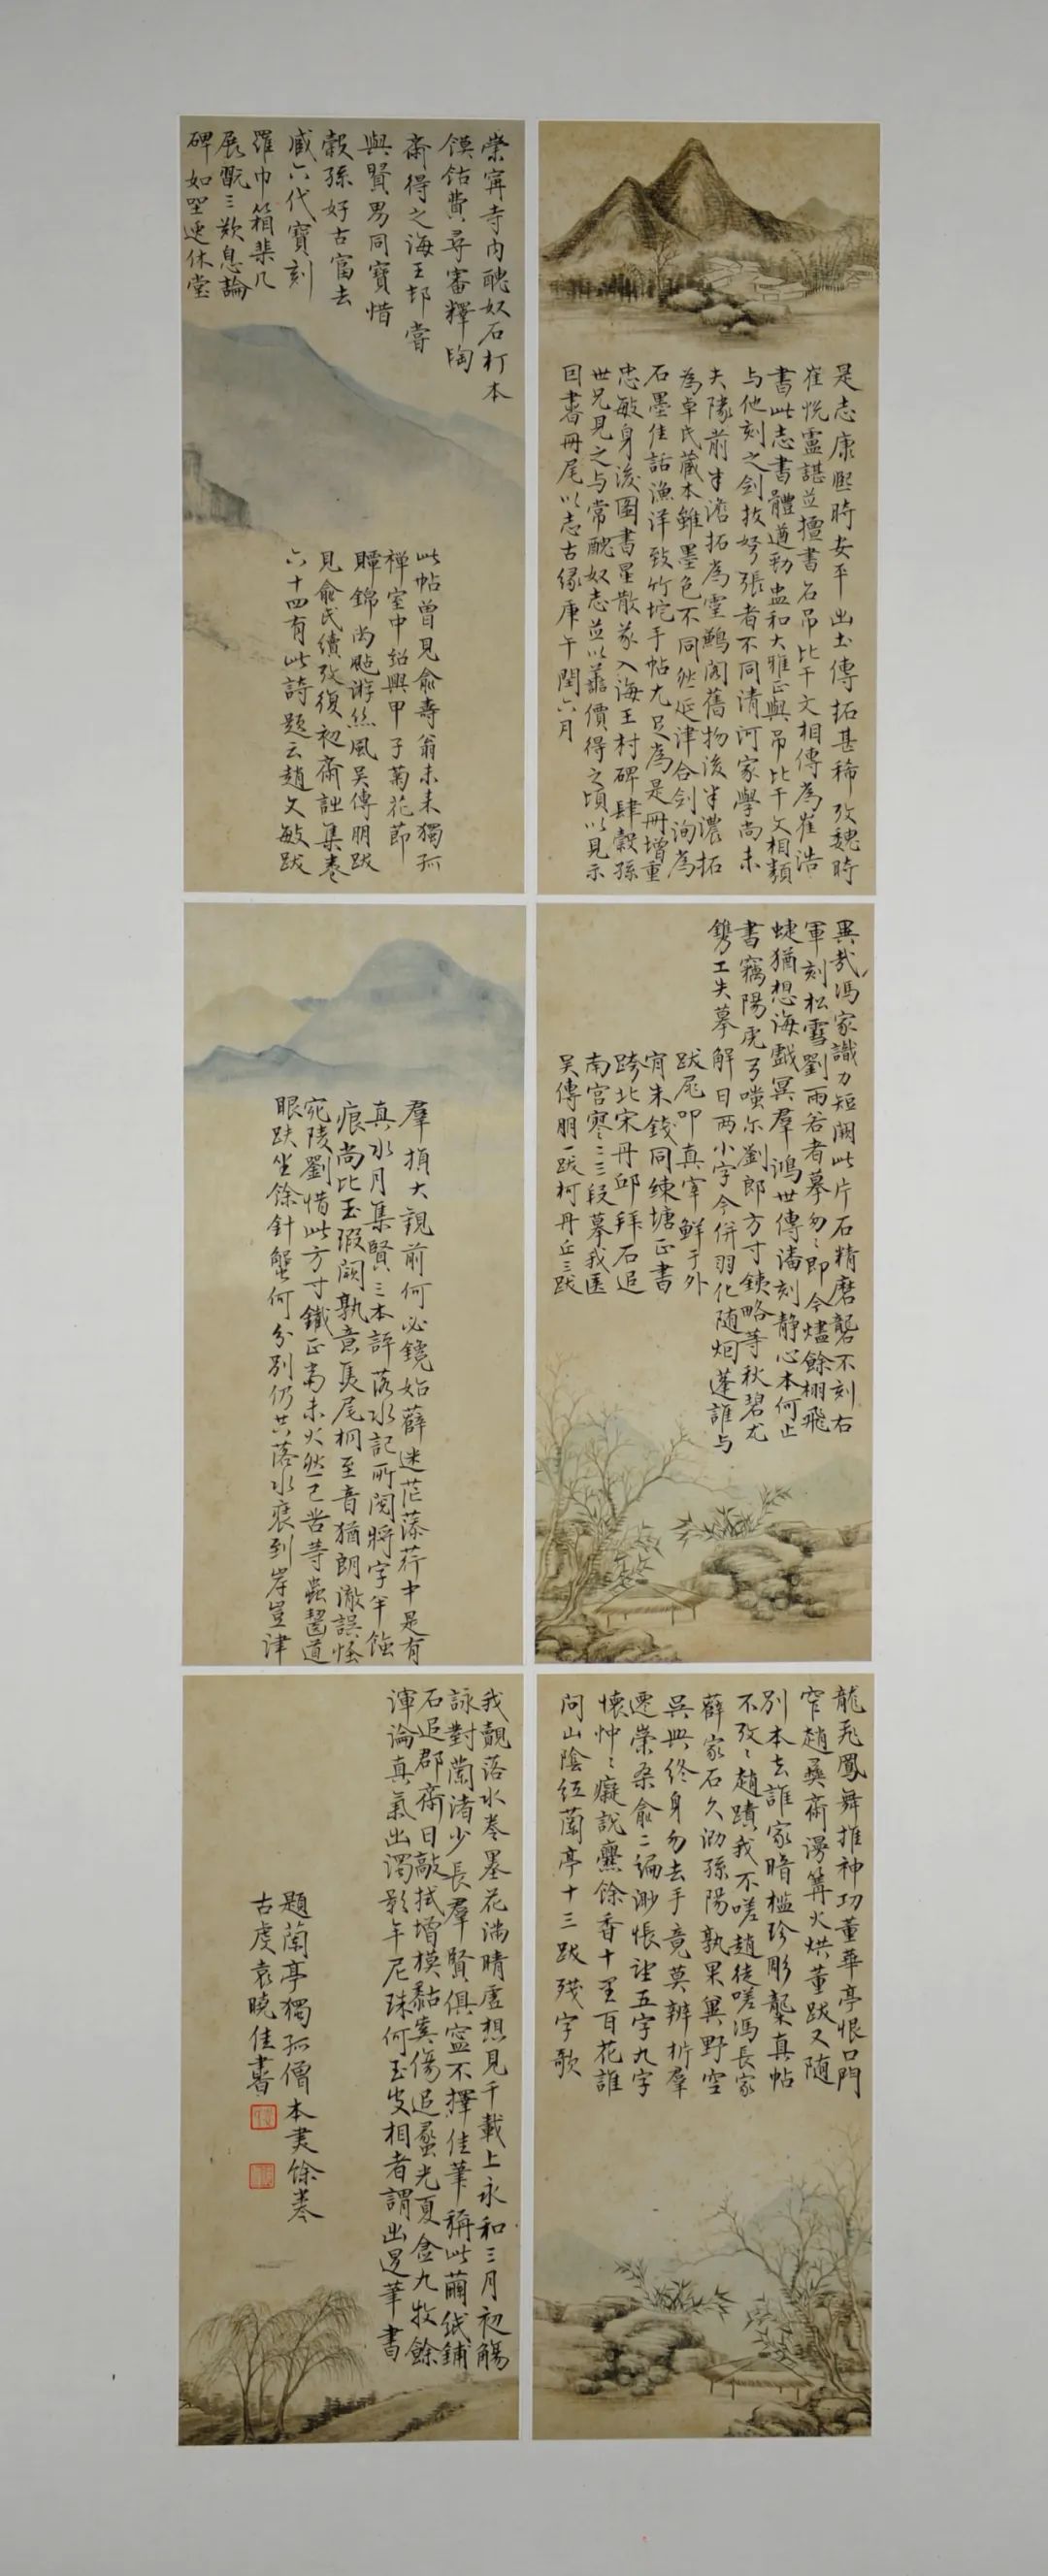 是志康熙時安平出土傳拓甚稀攷魏時
崔悦盧諶並擅書名吊比干文相傳為崔浩
書此志書體遒勁盅和大雅正與吊比干文相類
与他刻之劍拔弩張者不同清河家學尚未
夫隊前半澹拓為雪鷀阁舊物後半濃拓
為卓氏藏本雖墨色不同然延津合劍洵為
石墨佳話漁洋致竹垞手帖尤足為是冊增重
忠敏身後圖書星散篆入海王村碑肆穀孫
世兄見之与常醜奴志並以善價得之頃以見示
回書冊尾以志古缘庚午閏六月
榮寧寺内醜奴石打本
饃饳費尋審釋陶
齋得之海王邨嘗
與賢男同寶惜
穀孫好古富去
臧六代寶刻
羅巾箱棐几
展翫三歎息論
碑如堊逭休堂
此帖曾見俞壽翁未来獨孤
禅室中紹興甲子菊花節
賱錦尚颭游絲風吴傅朋跋
見俞氏續攷復初齋詩集卷
六十四有此詩題云趙文敏跋
異哉馮家識力短阙此片石精磨礱不刻右
軍刻松雪劉雨若者摹勿勿即今燼餘栩飛
蜨猶想海戲冥羣鴻世傳潘刻静心本何止
書竊陽虎弓嗤尔劉郎方寸鐵略等秋碧尤
鐫工失摹解日两小字今併羽化随烟蓬誰与
跋尾叩真宰鮮于外
宵朱錢同練塘正書
跨北宋丹邱拜石追
南宫寒寒三段摹我医
吴傅朋一跋柯丹丘三跋
羣損大親前何必鐃始薛迷茫蓁荇中是有
真水月集賢三本評落水記所閱將字半蝕
痕尚比玉瑕阙孰意焦尾桐至音猶朗澈誤怪
宛陵劉惜此方寸鐵正當未火然已苦等蟲齧道
眼趺坐餘針蟹何分别仍共落水褱到岸豈津
龍飛鳳舞推神功董華亭恨口門
窄趙彝齋漫篝火烘董跋又随
別本去誰家暗橀珍彫鏧真帖
不攷攷趙蹟我不嗟趙徒嗟馮長家
薛家石久泐孫陽孰果巽野空
吴興终身勿去手竟莫辨析羣
遷崇桑俞二编渺悵望五字九字
懷忡忡癡説爨餘香十里百花誰
问山陰紅蘭亭十三跋殘字歌
我觀落水卷墨花淌晴虛想見千載上永和三月初觴
詠對蘭渚少長羣賢俱寍不擇佳筆稱此繭紙鋪
石追郡齋日敲拭增模黏寞傷追蠡光夏盦九牧餘
渾論真氣出濁影牟尼珠何玉皮相者謂出逻華書
題蘭亭獨孤僧本尗餘卷
古虔袁曉佳書